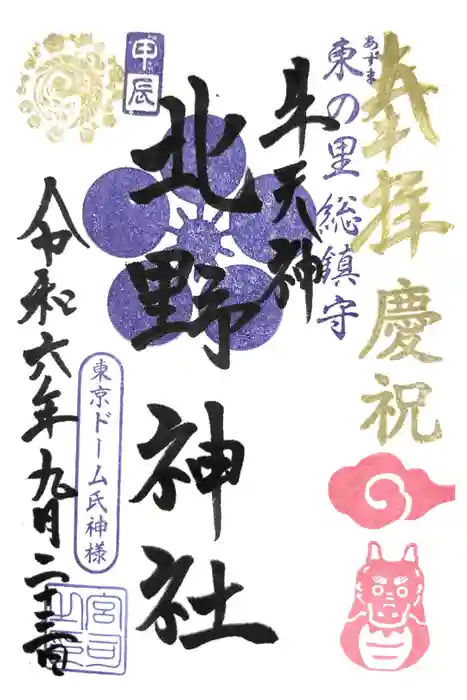 奉拝 慶祝
東の里 総鎮守
あずま
牛天神
北野神社
甲辰
東京ドーム氏神様
令和六年九月二十三日